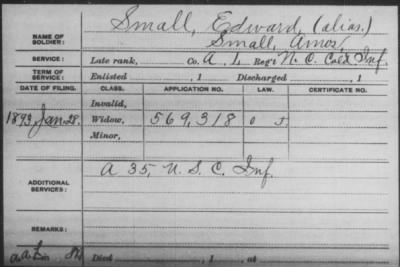 Small, Edward, (alias.)
NAME OF SOLDIER: Small, Amos,
SERVICE: Late rank, Co. A, 1, Reg't N. C. Cold Inf.
TERM OF SERVICE: Enlisted , 1 Discharged , 1
DATE OF FILING. CLASS. APPLICATION NO. LAW. CERTIFICATE NO.
Invalid,
1893 Jan. 28. Widow, 569,318
Minor,
A 35, U. S. C. Inf.
ADDITIONAL SERVICES:
REMARKS:
Died , 1 , at